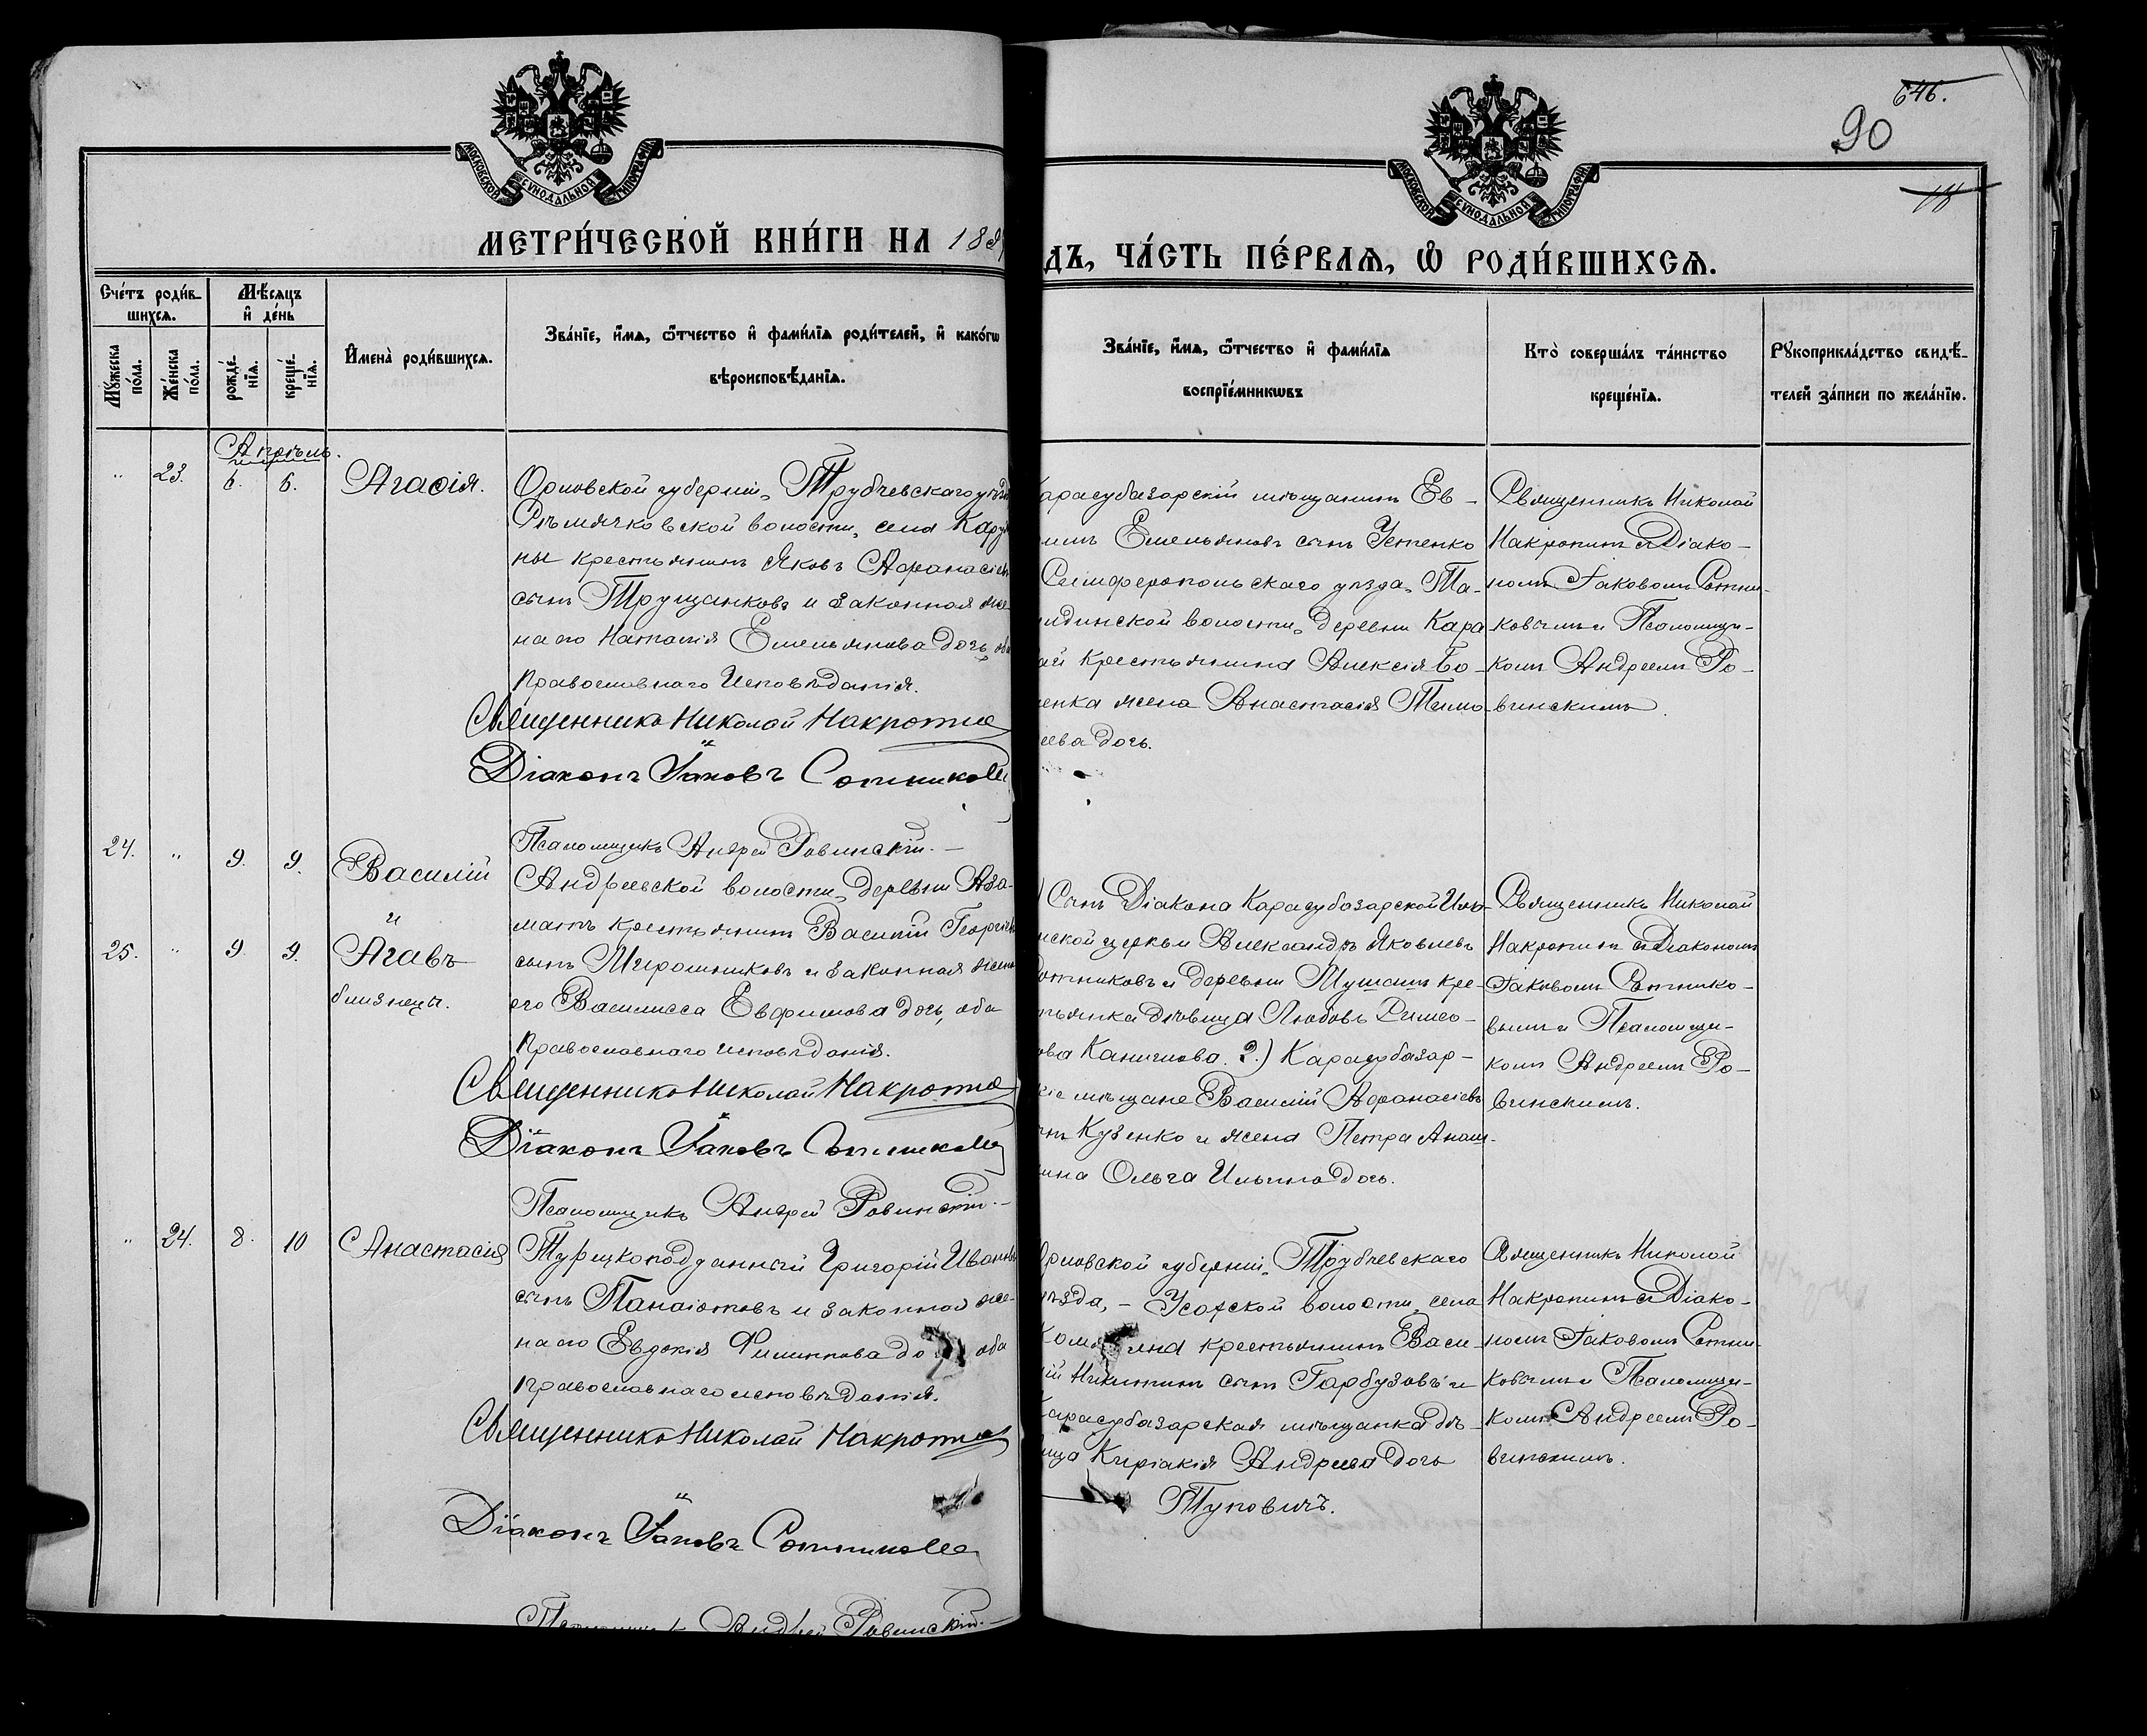 646.
90
18
МОСКОВСКОЙ СѴНОДАЛЬНОЙ ТИПОГРАФІИ
МОСКОВСКОЙ СѴНОДАЛЬНОЙ ТИПОГРАФІИ
МЕТРИ́ЧЕСКОЙ КНИ́ГИ НА 189
ДЪ, ЧА́СТЬ ПЕ́РВАѦ, Ѽ РОДИ́ВШИХСѦ.
Сче́тъ роди́в-
шихсѧ.
Мѣ́сѧцъ
и҆ де́нь
Мꙋ́жеска
по́ла.
Же́нска
по́ла.
рожде́-
нїѧ.
креще́-
нїѧ.
И҆мена̀ роди́вшихсѧ.
Зва́нїе, и҆́мѧ, ѻ҆́тчество и҆ фами́лїѧ роди́телей, и҆ како́гѡ
вѣроисповѣ́данїѧ.
Зва́нїе, и҆́мѧ, ѻ҆́тчество и҆ фами́лїѧ
воспрїе́мникѡвъ
Кто̀ соверша́лъ та́инство
креще́нїѧ.
Рꙋкоприкла́дство свидѣ́-
телей за́писи по жела́нїю.
Апрѣль.
" 23. 6. 6. Агафія.
Орловской губерніи, Трубчевскаго уѣзда
волости, села
ны крестьянинъ Яковъ Афанасіевъ
сынъ Трущанковъ и законная же-
на его Наталія Емельянова дочь, оба
православнаго исповѣданія.
Священникъ Николай Накропинъ
Діаконъ Іаковъ Сотниковъ
Псаломщикъ Андрей Ровинскій.—
арасубазарскій мѣщанинъ Ев-
имъ Емельяновъ сынъ Устенко
Симферопольскаго уѣзда, Та-
динской волости, деревни Кара
ай крестьянина Алексія Бо-
енка жена Анастасія Тимо-
еева дочь.
Священникъ Николай
Накропинъ съ Діако-
номъ Іаковомъ Сотни-
ковымъ и Псаломщи-
комъ Андреемъ Ро-
винскимъ.
24. " 9. 9. Василій
и
25. " 9. 9. Агавъ
близнецы.
Андреевской волости, деревни Аза-
матъ крестьянинъ Василій Георгіевъ
сынъ Мирошниковъ и законная жена
его Василисса Евфимова дочь, оба
православнаго исповѣданія.
Священникъ Николай Накропинъ
Діаконъ Іаковъ Сотниковъ
Псаломщикъ Андрей Ровинскій.—
) Сынъ Діакона Карасубазарской Нико-
ской церкви Александръ Яковлевъ
отниковъ и деревни Мушашъ кре-
тьянка дѣвица Любовь
ова 2.) Карасубазар-
кіе мѣщане Василій Афанасіевъ
нъ Кузенко и жена Петра
ина Ольга Ильина дочь.
Священникъ Николай
Накропинъ съ Діакономъ
Іаковомъ Сотнико-
вымъ и Псаломщи-
комъ Андреемъ Ро-
винскимъ.
" 24. 8. 10 Анастасія
Турецкоподданный Григорій Ивановъ
сынъ Панаіотовъ и законная же-
на его Евдокія Филиппова до оба
православнаго исповѣданія.
Священникъ Николай Накропинъ
Діаконъ Іаковъ Сотниковъ
Псаломщикъ Андрей Ровинскій.—
рловской губерніи, Трубчевскаго
уѣзда, – Усохской волости, села
крестьянинъ Васи-
ій Никитинъ сынъ Гарбузовъ и
арасубазарская мѣщанка дѣ-
ица Киріакія Андреева дочь
Туповичъ.
Священникъ Николай
Накропинъ съ Діако-
номъ Іаковомъ Сотни-
ковымъ и Псаломщи-
комъ Андреемъ Ро-
винскимъ.